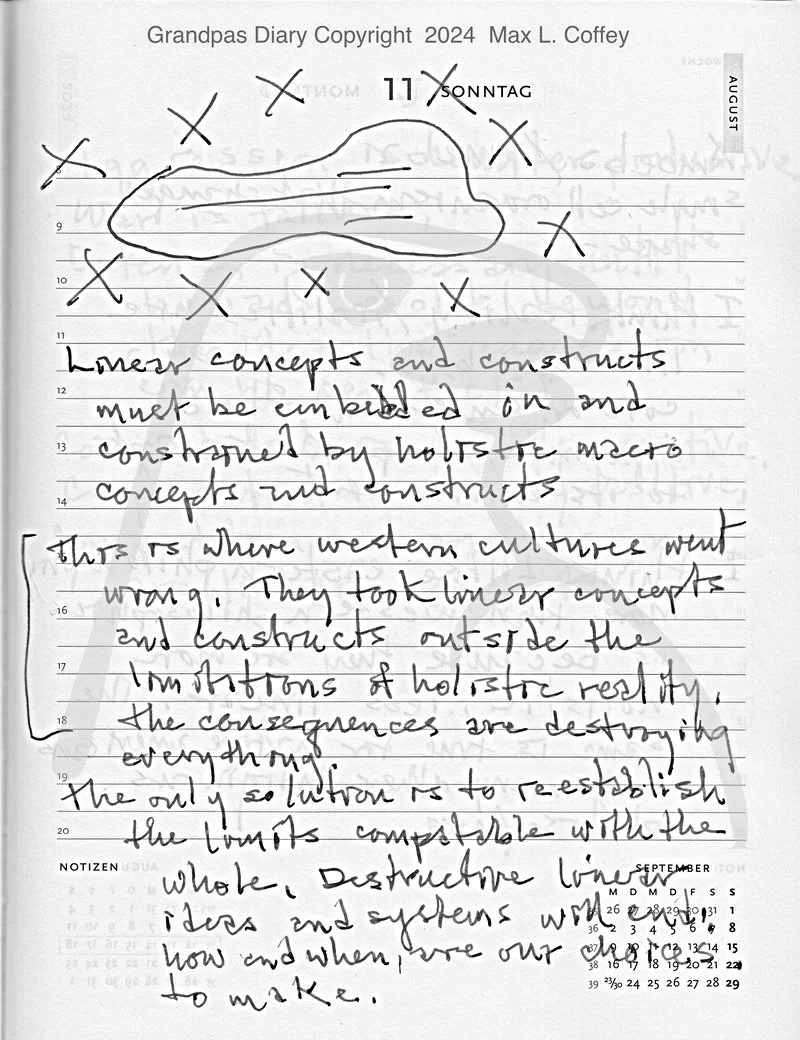 Grandpas Diary Copyright 2024 Max L. Coffey
11 SONNTAG
AUGUST
9
10
11
Linear concepts and constructs
12
must be embedded in and
13
constrained by holistic macro
14
concepts and constructs
This is where western cultures went
wrong. They took linear concepts
16
and constructs outside the
17
limititions of holistic reality.
18
the consequences are destroying
everything.
19
The only solution is to reestablish
20
the limits compatable with the
NOTIZEN
SEPTEMBER
whole. Destructive linear
M D M D F S S
ideas and systems will end.
26 27 28 29 30 31 1
36 2 3 4 5 6 7 8
how and when, are our choices
37 9 10 11 12 13 14 15
38 16 17 18 19 20 21 22
to make.
39 23/30 24 25 26 27 28 29